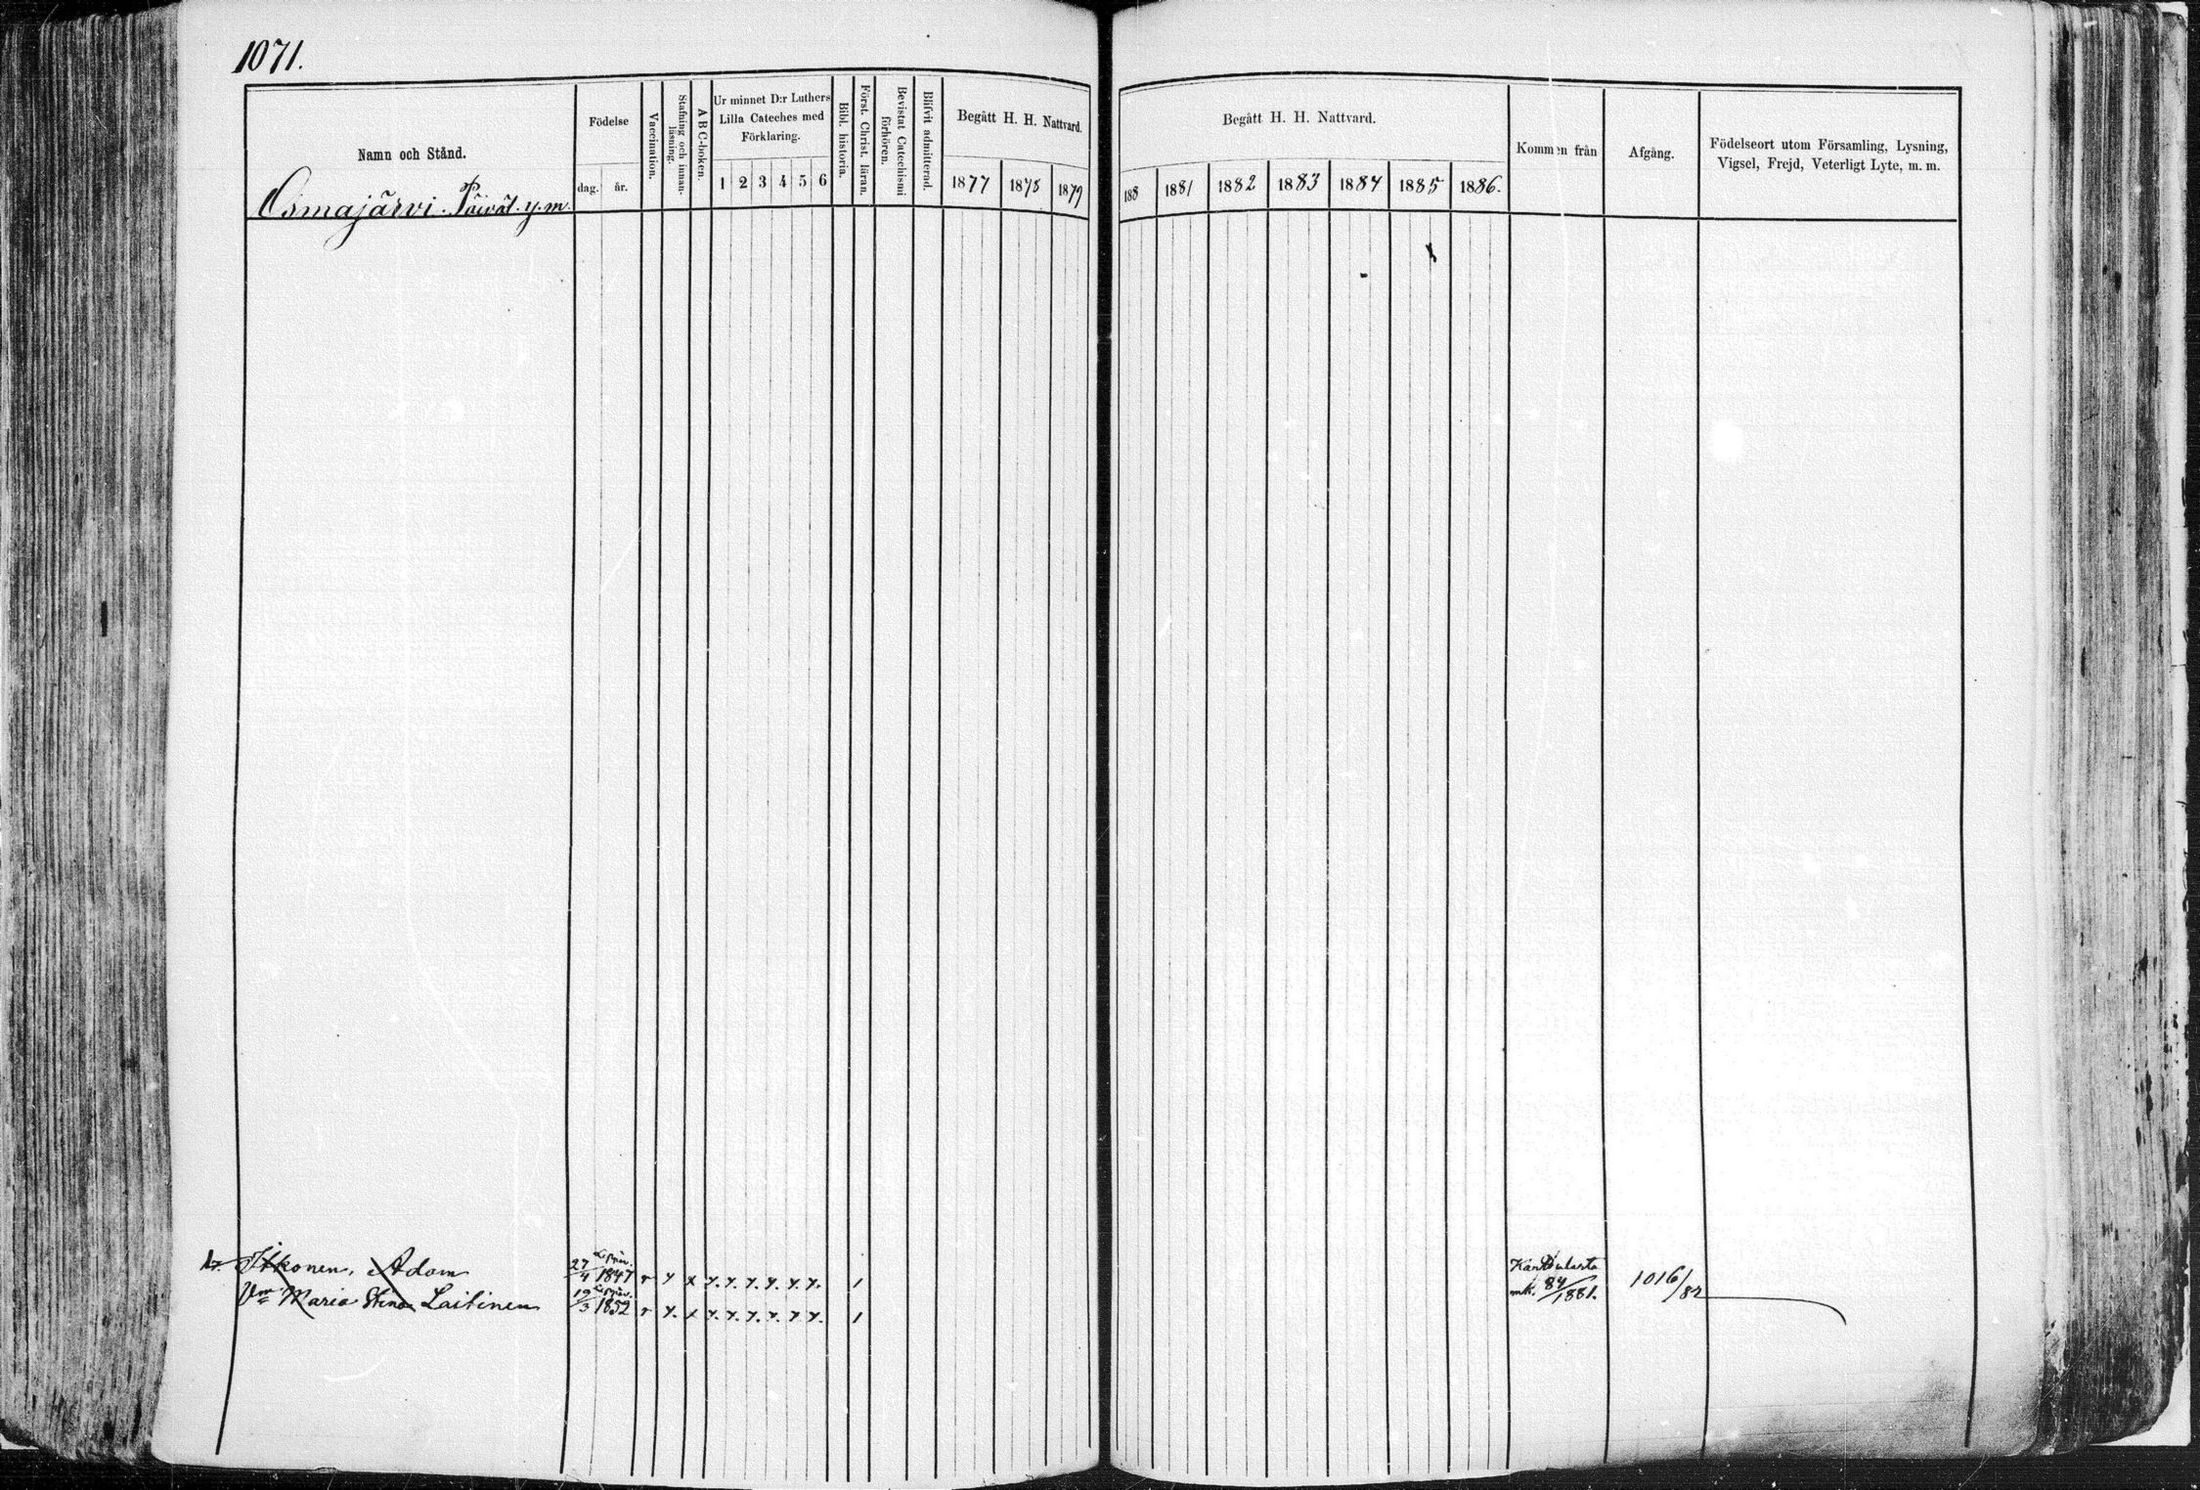 1071.
Namn och Stånd.
Födelse
dag. år.
Vaccination.
Stafning och innan-
läsning.
A B C-boken.
Ur minnet D:r Luthers
Lilla Cateches med
Förklaring.
1 2 3 4 5 6
Bibl. historia.
Först. Christ. läran.
Bevistat Catechismi
förhören.
Blifvit admitterad.
Begått H. H. Nattvard.
1877 1878 1879
Begått H. H. Nattvard.
188 1881 1882 1883 1884 1885 1886.
Kommen från
Afgång.
Födelseort utom Församling, Lysning,
Vigsel, Frejd, Veterligt Lyte, m. m.
Osmajärvi. Päivät. y. m.
Itkonen, Adam 27/4 1847 v y x y. y. y. y. y. y. 1
mk. 84/1881. 1016/82
Maria Stina Laitinen 19/3 1852 v y. x y. y. y. y. y. y. 1